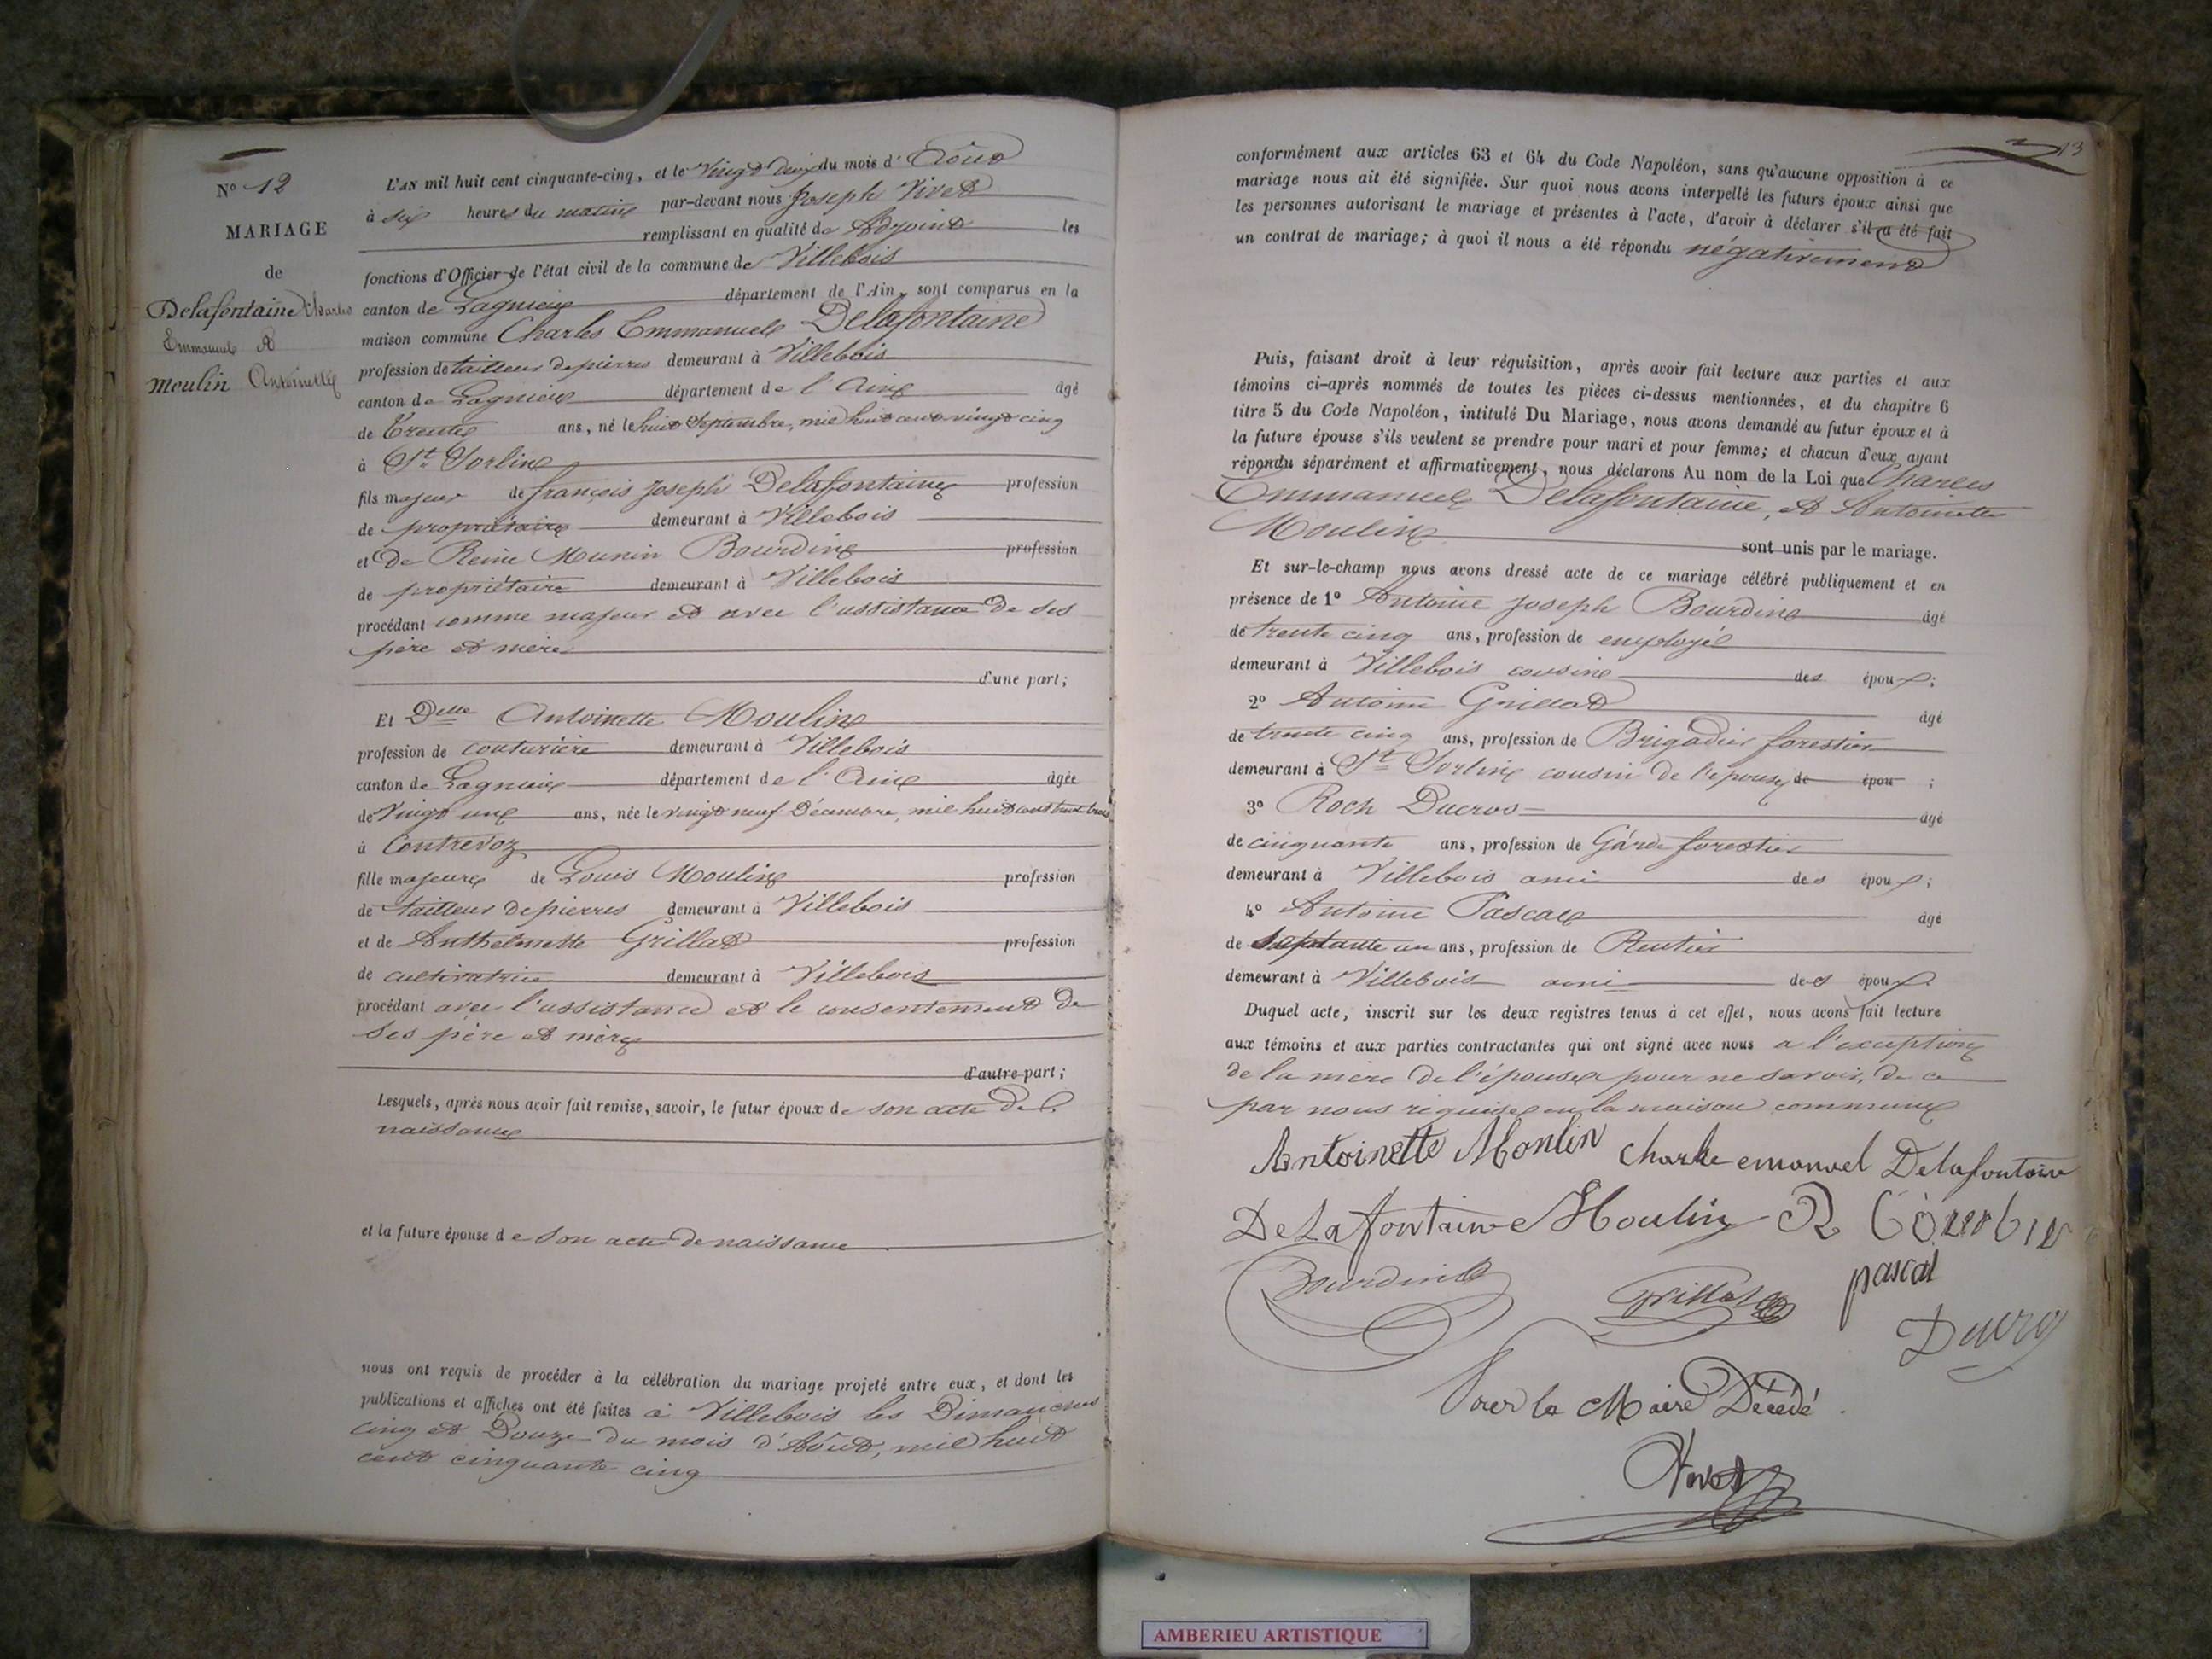 N° 12
MARIAGE
de
Delafontaine Charles
Emmanuel et
Moulin Antoinette
L'AN mil huit cent cinquante-cinq, et le Vingt deux du mois d'Août
à six heures du matin par-devant nous Joseph Vivet
remplissant en qualité de Adjoint les
fonctions d'Officier de l'état civil de la commune de Villebois
canton de Lagnieu département de l'Ain, sont comparus en la
maison commune Charles Emmanuel Delafontaine
profession de tailleur de pierres demeurant à Villebois
canton de Lagnieu département de l'Ain âgé
de Trente ans, né le huit Septembre, mil huit cent vingt cinq
à St Sorlin
fils majeur de françois Joseph Delafontaine profession
de propriétaire demeurant à Villebois
et de Reine Munin Bourdin profession
de propriétaire demeurant à Villebois
procédant comme majeur et avec l'assistance de ses
père et mère
d'une part;
Et Delle Antoinette Moulin
profession de couturière demeurant à Villebois
canton de Lagnieu département de l'Ain âgée
de Vingt une ans, née le vingt neuf Décembre, mil huit cent trente trois
à Contrevoz
fille majeure de Louis Moulin profession
de tailleur de pierres demeurant à Villebois
et de Anthelmette Grillat profession
de cultivatrice demeurant à Villebois
procédant avec l'assistance et le consentement de
ses père et mère
d'autre part;
Lesquels, après nous avoir fait remise, savoir, le futur époux de son acte de
naissance
et la future épouse de son acte de naissance
nous ont requis de procéder à la célébration du mariage projeté entre eux, et dont les
publications et affiches ont été faites à Villebois les Dimanches
cinq et Douze du mois d'Août, mil huit
cent cinquante cinq
13
conformément aux articles 63 et 64 du Code Napoléon, sans qu'aucune opposition à ce
mariage nous ait été signifiée. Sur quoi nous avons interpellé les futurs époux ainsi que
les personnes autorisant le mariage et présentes à l'acte, d'avoir à déclarer s'il a été fait
un contrat de mariage; à quoi il nous a été répondu négativement
Puis, faisant droit à leur réquisition, après avoir fait lecture aux parties et aux
témoins ci-après nommés de toutes les pièces ci-dessus mentionnées, et du chapitre 6
titre 5 du Code Napoléon, intitulé Du Mariage, nous avons demandé au futur époux et à
la future épouse s'ils veulent se prendre pour mari et pour femme; et chacun d'eux ayant
répondu séparément et affirmativement, nous déclarons Au nom de la Loi que Charles
Emmanuel Delafontaine, et Antoinette
Moulin sont unis par le mariage.
Et sur-le-champ nous avons dressé acte de ce mariage célébré publiquement et en
présence de 1° Antoine Joseph Bourdin âgé
de trente cinq ans, profession de employé
demeurant à Villebois cousin des époux;
2° Antoine Grillat âgé
de trente cinq ans, profession de Brigadier forestier
demeurant à St Sorlin cousin de l'épouse de épou ;
3° Roch Ducros âgé
de cinquante ans, profession de Garde forestier
demeurant à Villebois ami des époux;
4° Antoine Pascal âgé
de septante un ans, profession de Rentier
demeurant à Villebois ami des époux
Duquel acte, inscrit sur les deux registres tenus à cet effet, nous avons fait lecture
aux témoins et aux parties contractantes qui ont signé avec nous a l'exception
de la mère de l'épouse pour ne savoir, de ce
par nous requise en la maison commune
Antoinette Moulin Charle emanuel Delafontaine
DeLafontaine Moulin R
Bourdin Grillat pascal
Ducros
Pour le Maire Décédé
Vivet
AMBERIEU ARTISTIQUE